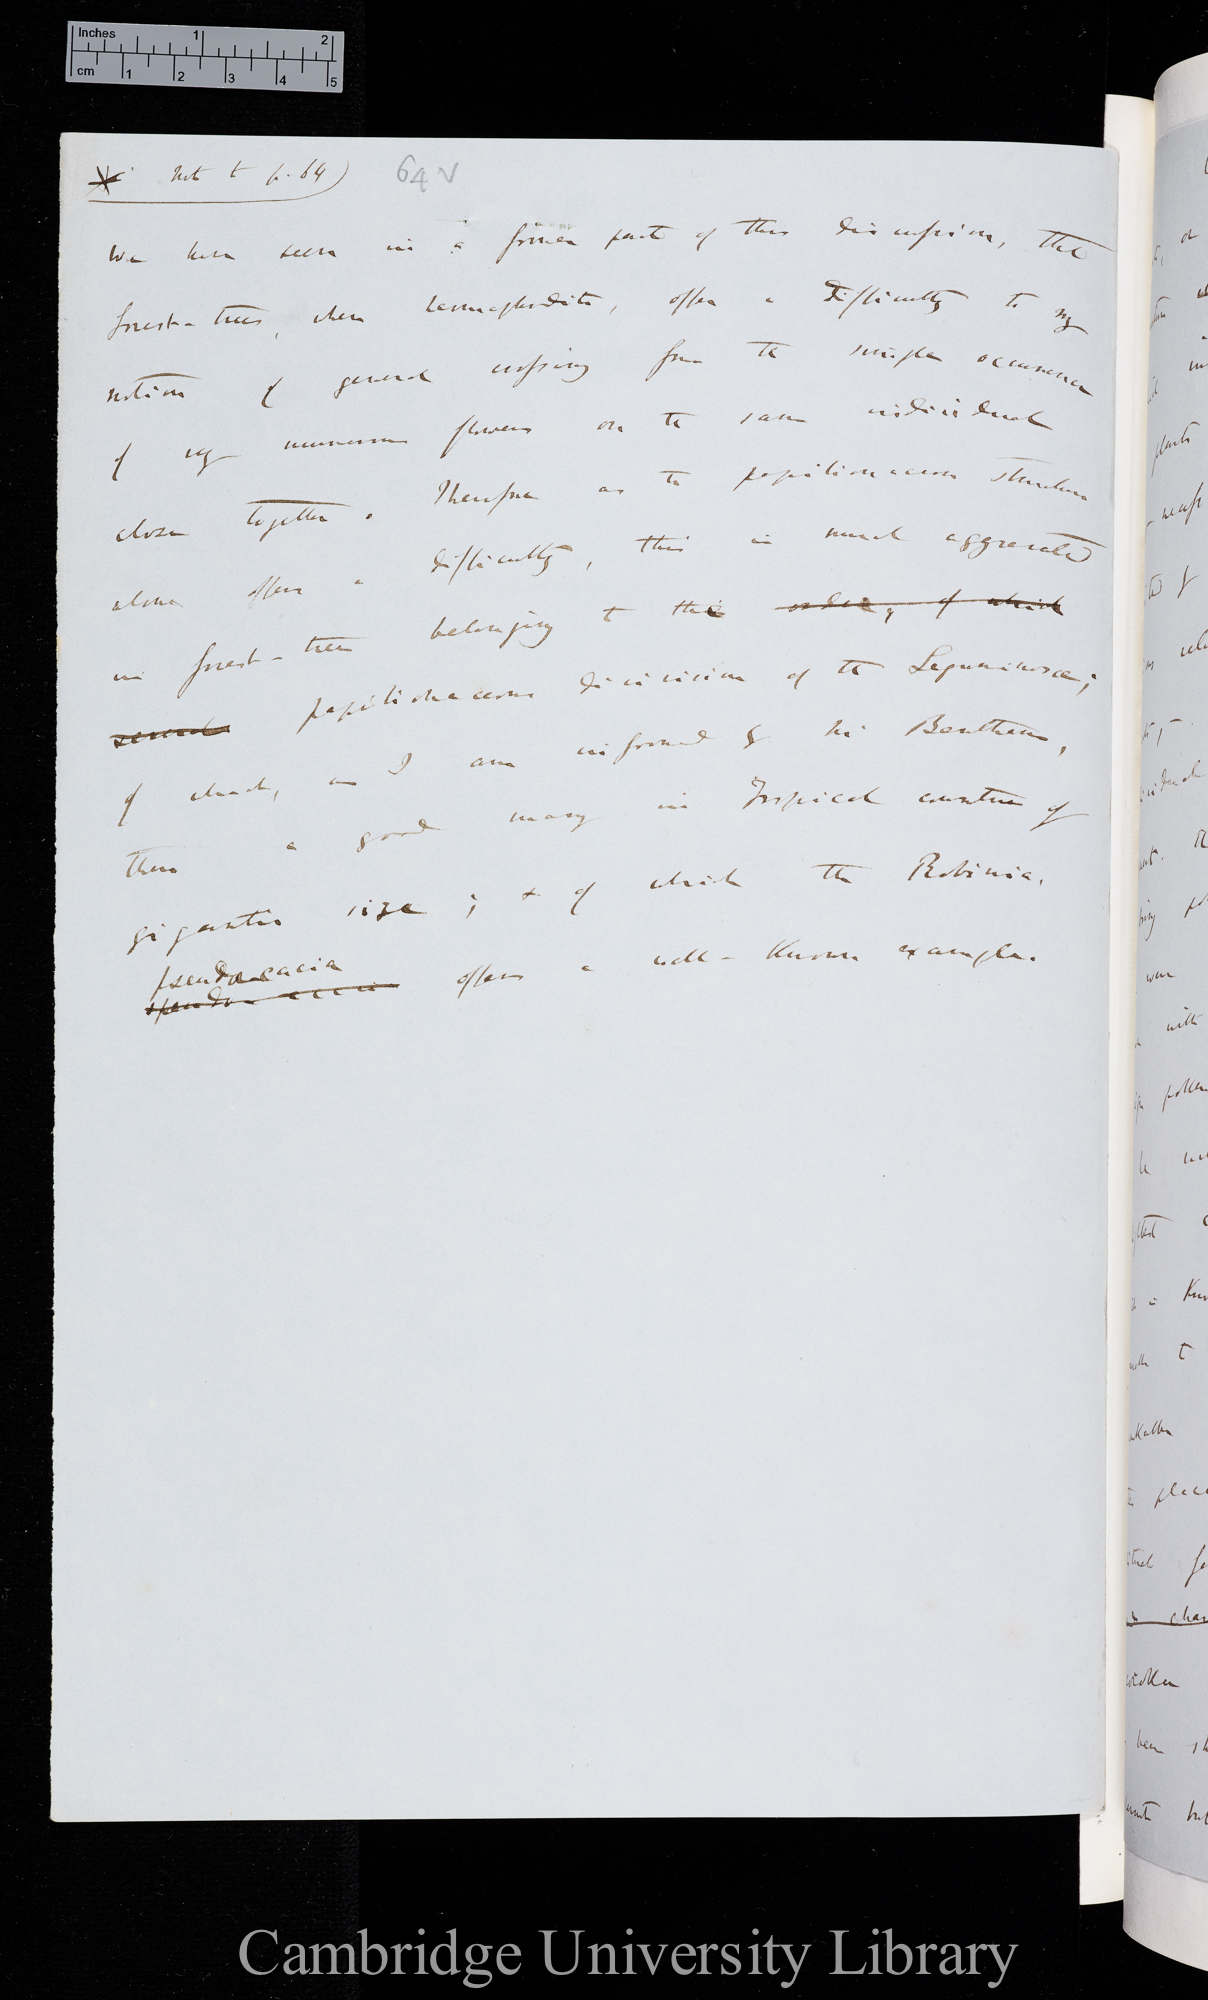 Inches 1 2
cm 1 2 3 4 5
* Note to p. 64) 64 v
We have seen in a former part of this discussion, that
forest-trees, when hermaphrodite, offer a difficulty to my
notion of general crossing from the simple occurrence
of very numerous flowers on the same individual
close together. Therefore as the papilionaceous structure
alone offers a difficulty, this is much aggravated
in forest-trees belonging to the order, of which
several papilionaceous division of the Leguminosæ;
of which, as I am informed by Mr Bentham,
there a good many in Tropical countries of
gigantic size; & of which the Robinia.
pseudo-acacia
offers a well-known example.
Cambridge University Library